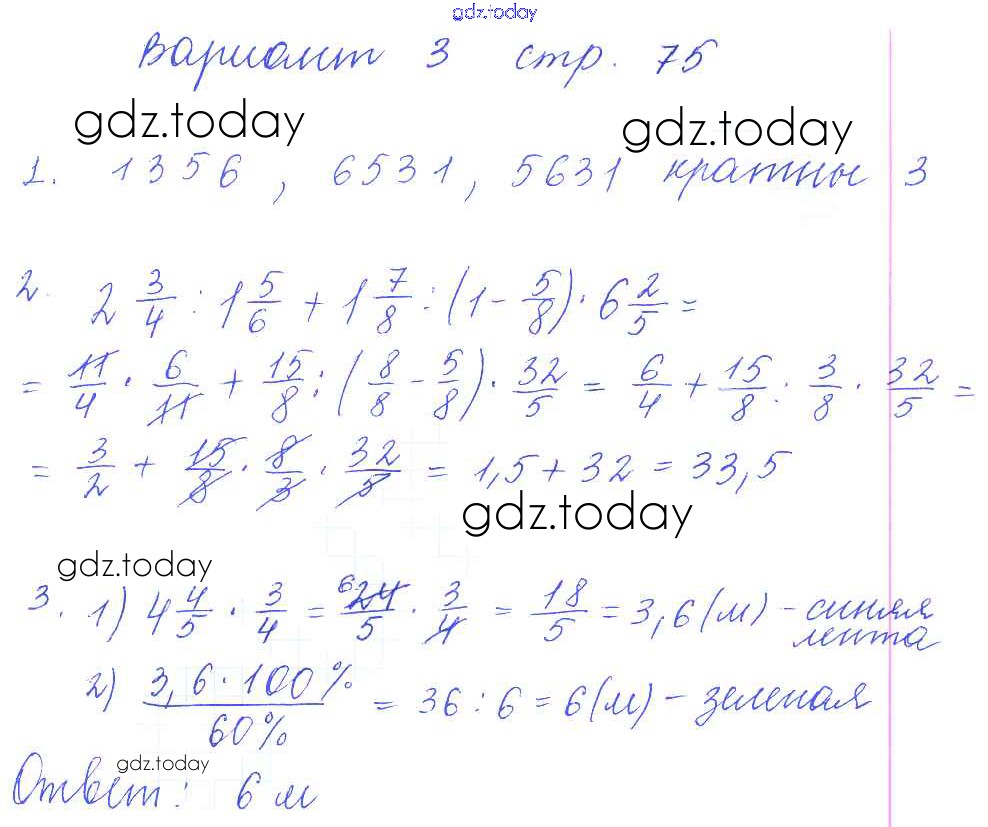 gdz.today
Вариант 3 стр. 75
gdz.today gdz.today
1. 1356, 6531, 5631 кратны 3
2. 2 3/4 : 1 5/6 + 1 7/8 : (1 - 5/8) · 6 2/5 =
= 11/4 · 6/11 + 15/8 : (8/8 - 5/8) · 32/5 = 6/4 + 15/8 : 3/8 · 32/5 =
= 3/2 + 15/8 · 8/3 · 32/5 = 1,5 + 32 = 33,5
gdz.today
gdz.today
3. 1) 4 4/5 · 3/4 = 6 24/5 · 3/4 = 18/5 = 3,6 (м) - синяя
лента
2) 3,6 · 100% / 60% = 36 : 6 = 6 (м) - зеленая
gdz.today
Ответ: 6 м